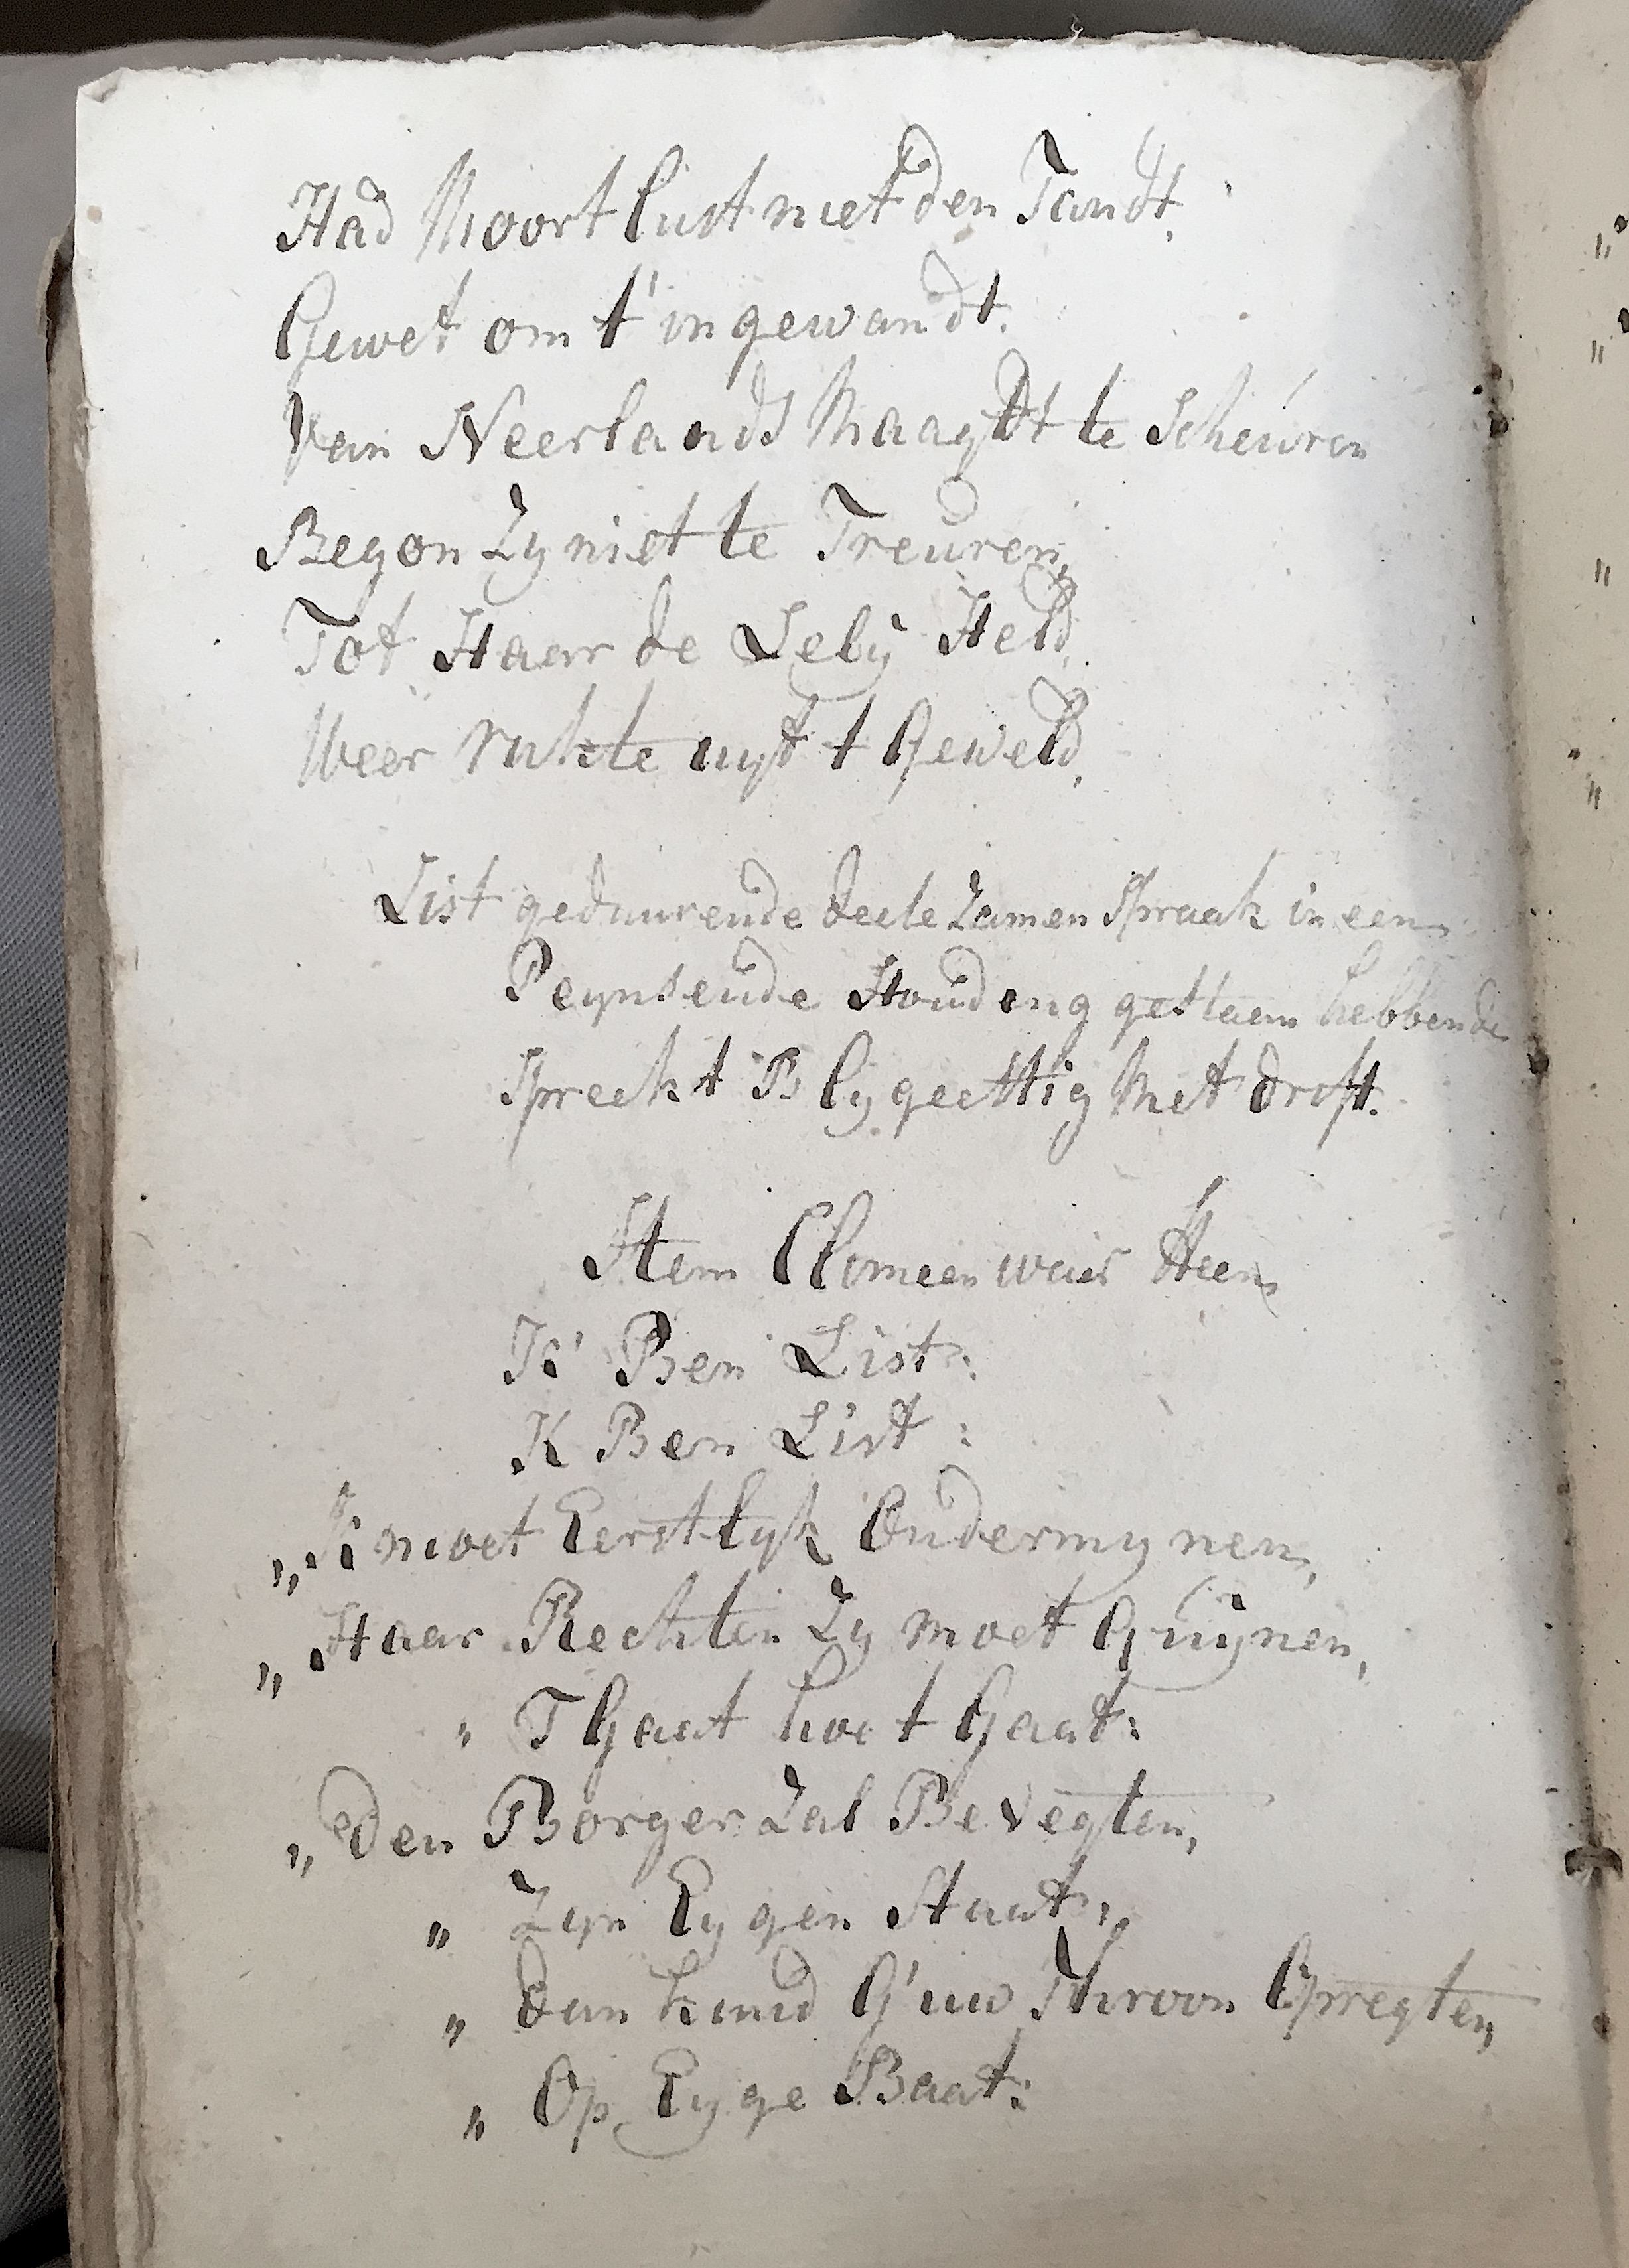 Had Moort lust niet den Tandt,
Gewet om t' ingewandt.
Van Neerlands Maagdt te Scheuren
Begon Zy niet te Treuren,
Tot Haar de Lely Held,
Weer rukte uyt t Geweld,
List geduurende deele Zamen Spraak in een
Peynsende Houdeng gestaen hebbende
Spreekt Blygeestig Met drift.
Stem Climeen waar Heen
K' Ben List:
K Ben List:
„ K moet Eerstlyk Ondermynen,
„ Haar Rechten Zy moet Quynen,
„ T Gaat hoe t Gaat:
„ Den Borger Zal Bevegten,
„ Zyn Eygen Staat,
„ Dan kund G'uw Throon Opregten,
„ Op Eyge Baat: